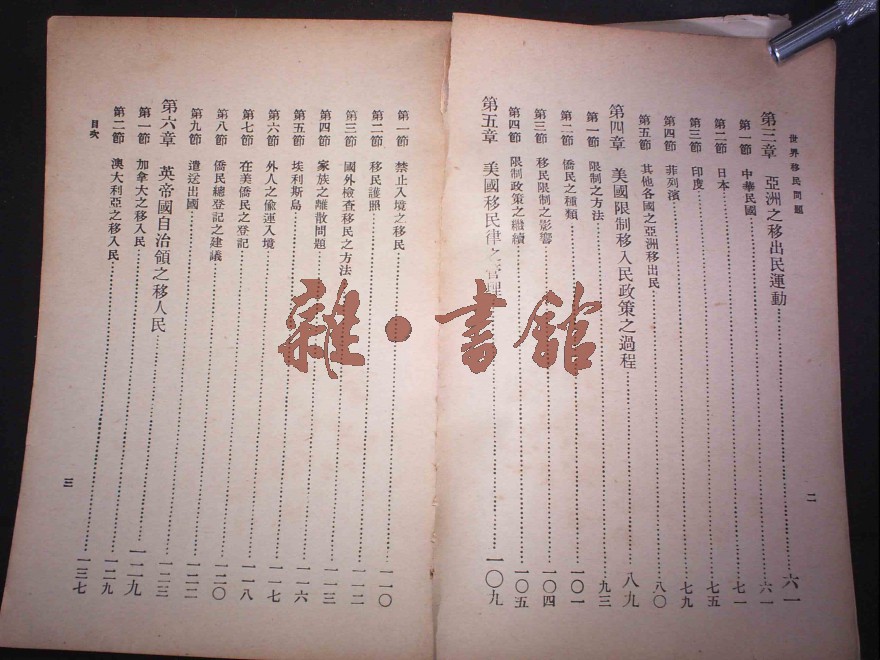 世界移民問題
第三章 亞洲之移出民運動……六一
第一節 中華民國……六一
第二節 日本……七一
第三節 印度……七五
第四節 菲列濱……七九
第五節 其他各國之亞洲移出民……八〇
第四章 美國限制移入民政策之過程……八九
第一節 限制之方法……九三
第二節 僑民之種類……一〇一
第三節 移民限制之影響……一〇四
第四節 限制政策之繼續……一〇五
第五章 美國移民律之管理……一〇九
二
第一節 禁止入境之移民……一一〇
第二節 移民護照……一一二
第三節 國外檢查移民之方法……一一三
第四節 家族之離散問題……一一六
第五節 埃利斯島……一一七
第六節 外人之偷運入境……一一八
第七節 在美僑民之登記……一二〇
第八節 僑民總登記之建議……一二二
第九節 遣送出國……一二三
第六章 英帝國自治領之移人民……一二九
第一節 加拿大之移入民……一二九
第二節 澳大利亞之移入民……一三七
目次
三
雜·書館